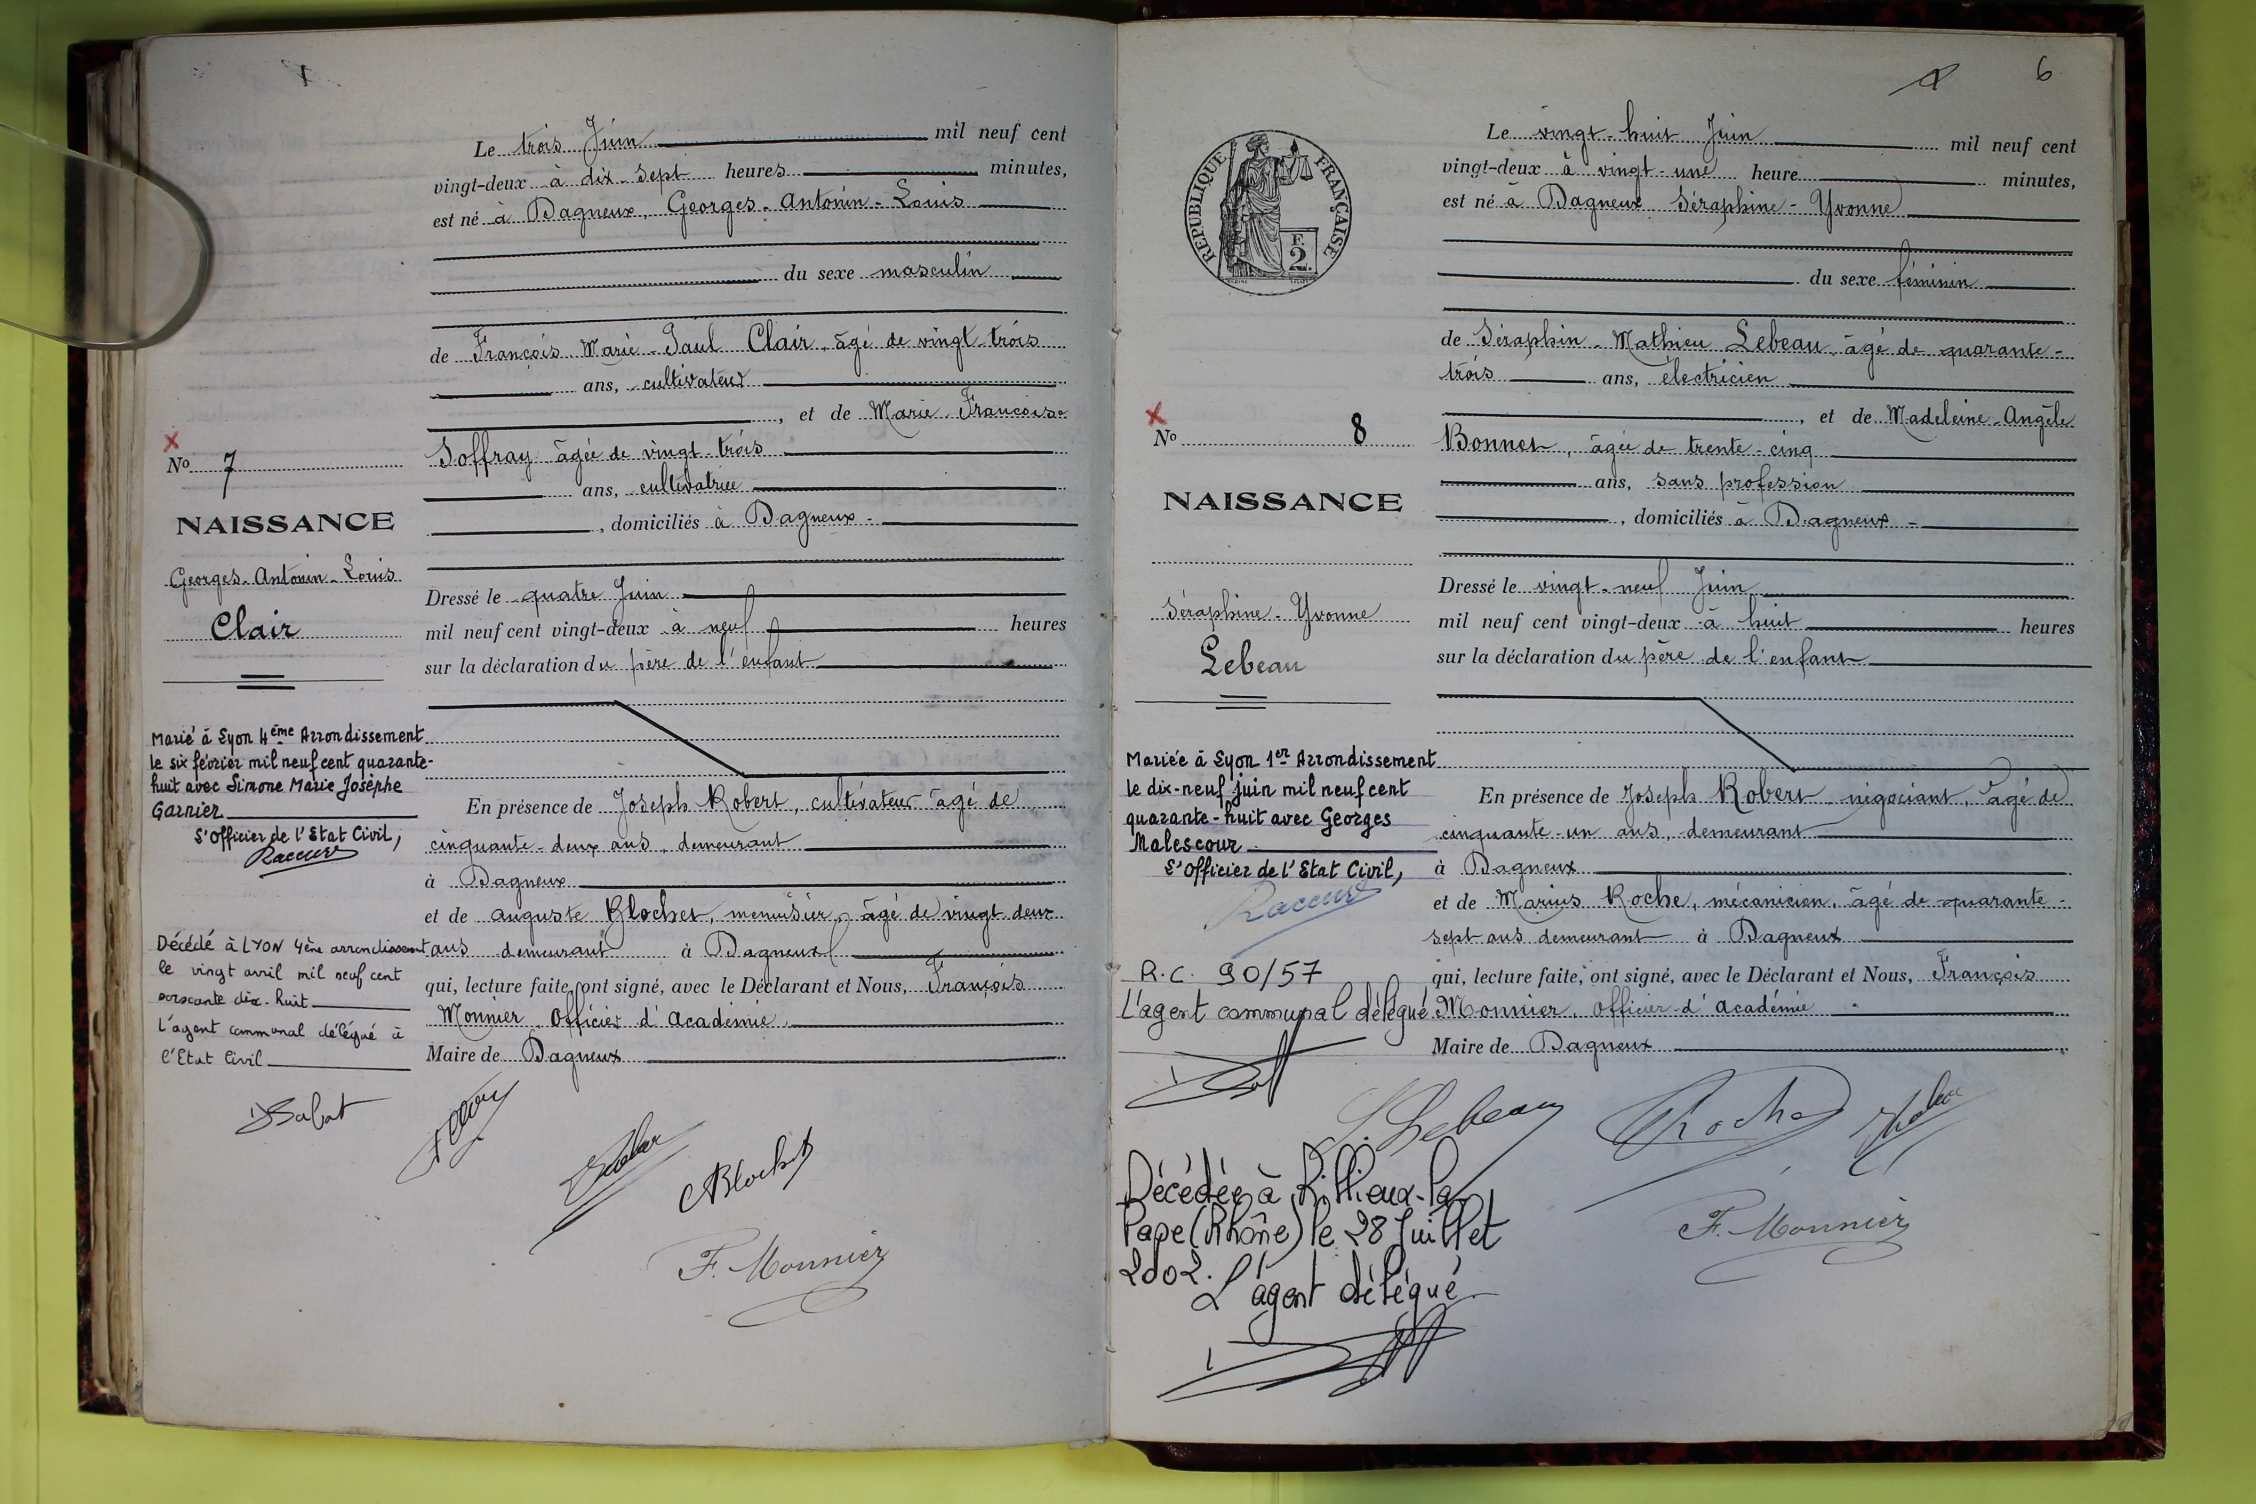 Le trois Juin mil neuf cent
vingt-deux à dix-sept heures minutes,
est né à Dagneux, Georges-Antonin-Louis
du sexe masculin
de François Marie-Paul Clair, âgé de vingt-trois
ans, cultivateur
, et de Marie Françoise
Joffray âgée de vingt-trois
ans, cultivatrice
, domiciliés à Dagneux -
Dressé le quatre Juin
mil neuf cent vingt-deux à neuf heures
sur la déclaration du père de l'enfant
En présence de Joseph Robert, cultivateur âgé de
cinquante-deux ans, demeurant
à Dagneux
et de Auguste Blochet, menuisier, âgé de vingt deux
ans demeurant à Dagneux
qui, lecture faite, ont signé, avec le Déclarant et Nous, François
Monnier, Officier d'Académie,
Maire de Dagneux
No 7
NAISSANCE
Georges-Antonin-Louis
Clair
Marié à Lyon 4ème Arrondissement
le six février mil neuf cent quarante-
huit avec Simone Marie Josèphe
Garnier
L'Officier de l'Etat Civil,
Décédé à LYON 4ème arrondissement
le vingt avril mil neuf cent
soixante dix-huit
L'agent communal délégué à
l'Etat Civil
Blochet
F. Monnier
6
Le vingt-huit Juin mil neuf cent
vingt-deux à vingt-une heure minutes,
est né à Dagneux Séraphine-Yvonne
du sexe féminin
de Séraphin-Mathieu Lebeau, âgé de quarante-
trois ans, électricien
, et de Madeleine-Angèle
Bonnet, âgée de trente-cinq
ans, sans profession
, domiciliés à Dagneux -
Dressé le vingt-neuf Juin
mil neuf cent vingt-deux à huit heures
sur la déclaration du père de l'enfant
En présence de Joseph Robert négociant, âgé de
cinquante-un ans, demeurant
à Dagneux
et de Marius Roche, mécanicien, âgé de quarante-
sept ans demeurant à Dagneux
qui, lecture faite, ont signé, avec le Déclarant et Nous, François
Monnier, Officier d'Académie
Maire de Dagneux
REPUBLIQUE FRANÇAISE
F.
2.
No 8
NAISSANCE
Séraphine-Yvonne
Lebeau
Mariée à Lyon 1er Arrondissement
le dix-neuf juin mil neuf cent
quarante-huit avec Georges
Malescour
L'Officier de l'Etat Civil,
R.C. 90/57
L'agent communal délégué
Lebeau
Roche
F. Monnier
Décédée à Rillieux-la-
Pape (Rhône) le 28 Juillet
2002.
L'agent délégué